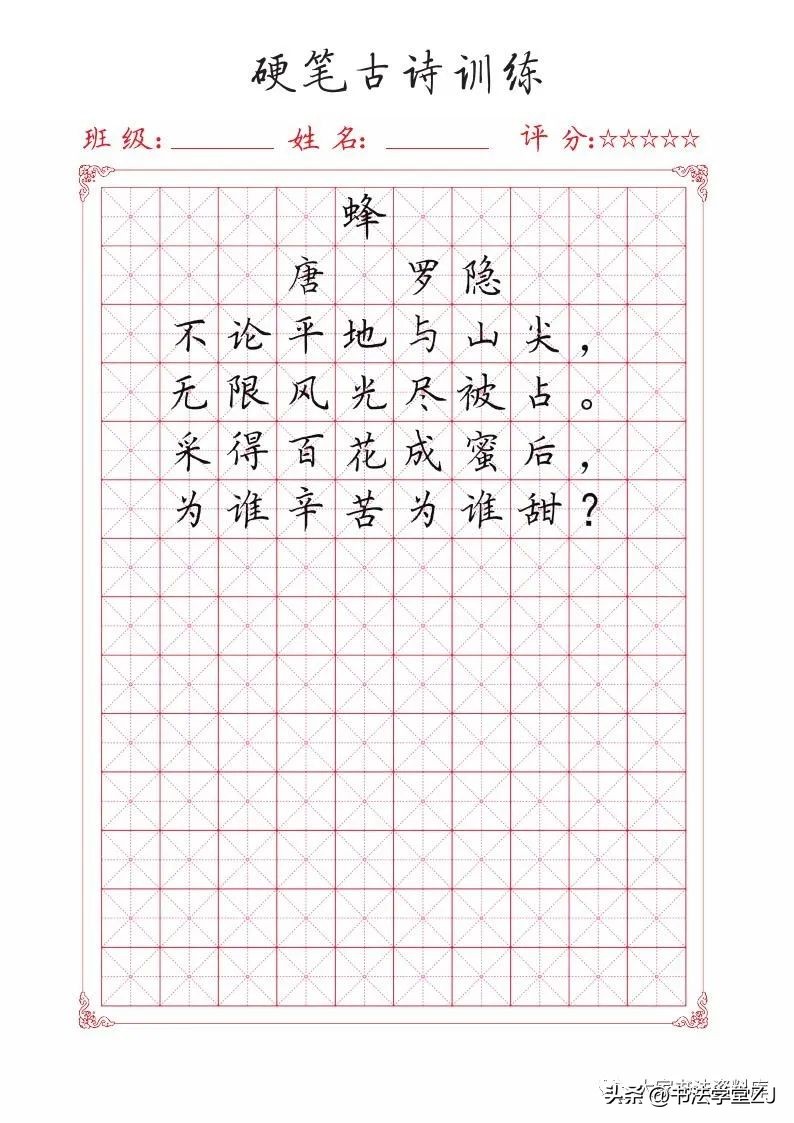 硬笔古诗训练
班级: 姓名: 评分:☆☆☆☆☆
蜂
唐 罗隐
不论平地与山尖，
无限风光尽被占。
采得百花成蜜后，
为谁辛苦为谁甜？
头条@书法学堂ZJ